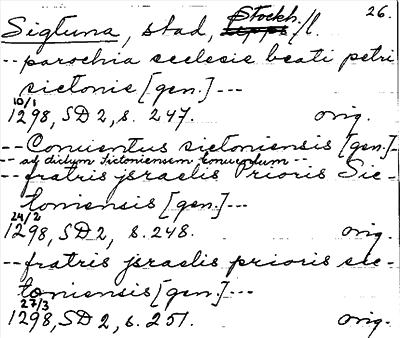 26.
Sigtuna, stad, Stockh. l.
-- parochia ecclesie beati petri
sictonis [gen.] ---
10/1
1298, SD 2, s. 247. orig.
-- Conuentus sictoniensis [gen.] --
-- ad dictum Sictoniensem conuentum --
-- fratris jsraelis Prioris Sic-
toniensis [gen.] ---
24/2
1298, SD 2, s. 248. orig.
-- fratris jsraelis prioris sic-
toniensis [gen.] ---
27/3
1298, SD 2, s. 251. orig.